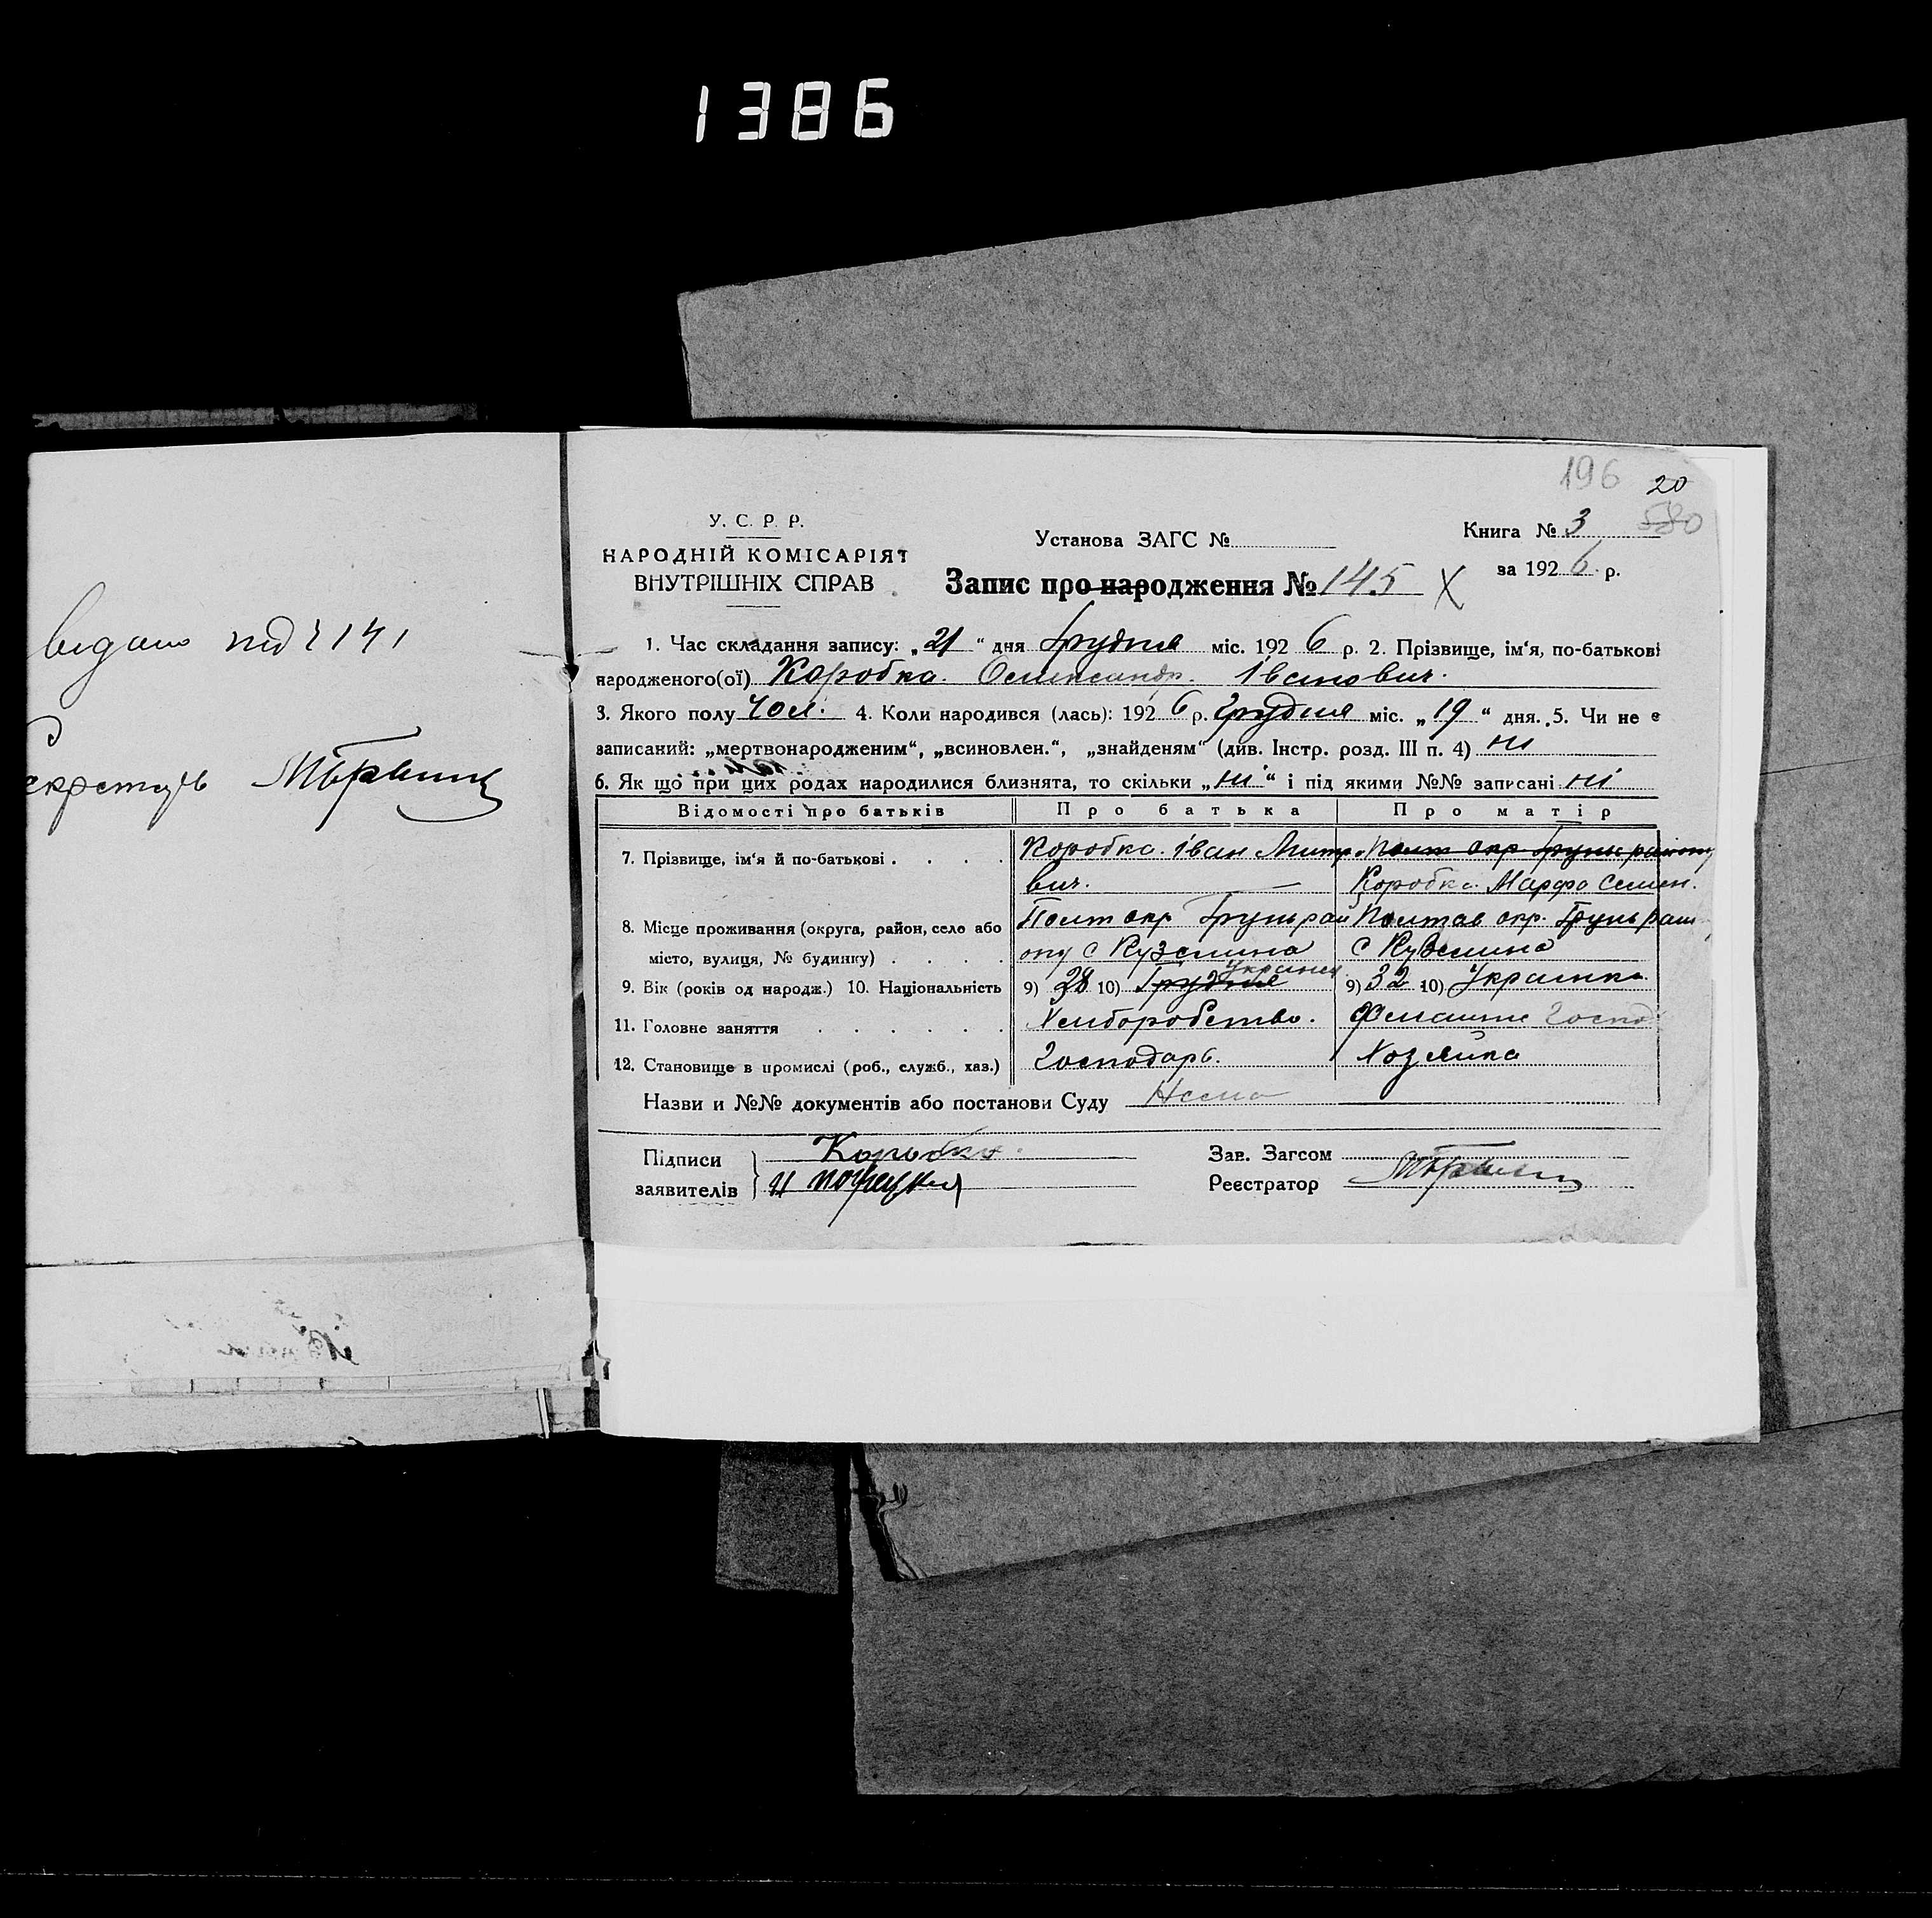 1386
видано під ч 141
Секретарь
196 20
580
У. С. Р. Р.
НАРОДНІЙ КОМІСАРІЯТ
ВНУТРІШНІХ СПРАВ
Установа ЗАГС №
Книга № 3
за 1926 р.
Запис про народження № 145 X
1. Час складання запису: „21“ дня Грудня міс. 1926 р. 2. Прізвище, ім'я, по-батькові
народженого(ої) Коробка Олександр Іванович.
3. Якого полу Чол. 4. Коли народився (лась): 1926 р. Грудня міс. „19“ дня. 5. Чи не є
записаний: „мертвонародженим“, „всиновлен.“, „знайденям“ (див. Інстр. розд. III п. 4) ні
6. Як що при цих родах народилися близнята, то скільки „ні“ і під якими №№ записані ні
Відомості про батьків Про батька Про матір
7. Прізвище, ім'я й по-батькові . . . . Коробка Іван Митро Полт окр Грунь району
вич. Коробка Марфа Семен.
8. Місце проживання (округа, район, село або Полт окр Грунь рай Полтав окр. Грунь рай
місто, вулиця, № будинку) . . . . ону с Куземина с Куземина
9. Вік (років од народж.) 10. Національність 9) 38 10) Грудня Українец 9) 32 10) Українка
11. Головне заняття . . . . . . Хліборобство. Домашне Госпо
12. Становище в промислі (роб., служб., хаз.) Господарь. Хозяйка
Назви и №№ документів або постанови Суду Нема
Підписи Коробка Зав. Загсом
заявителів Реєстратор